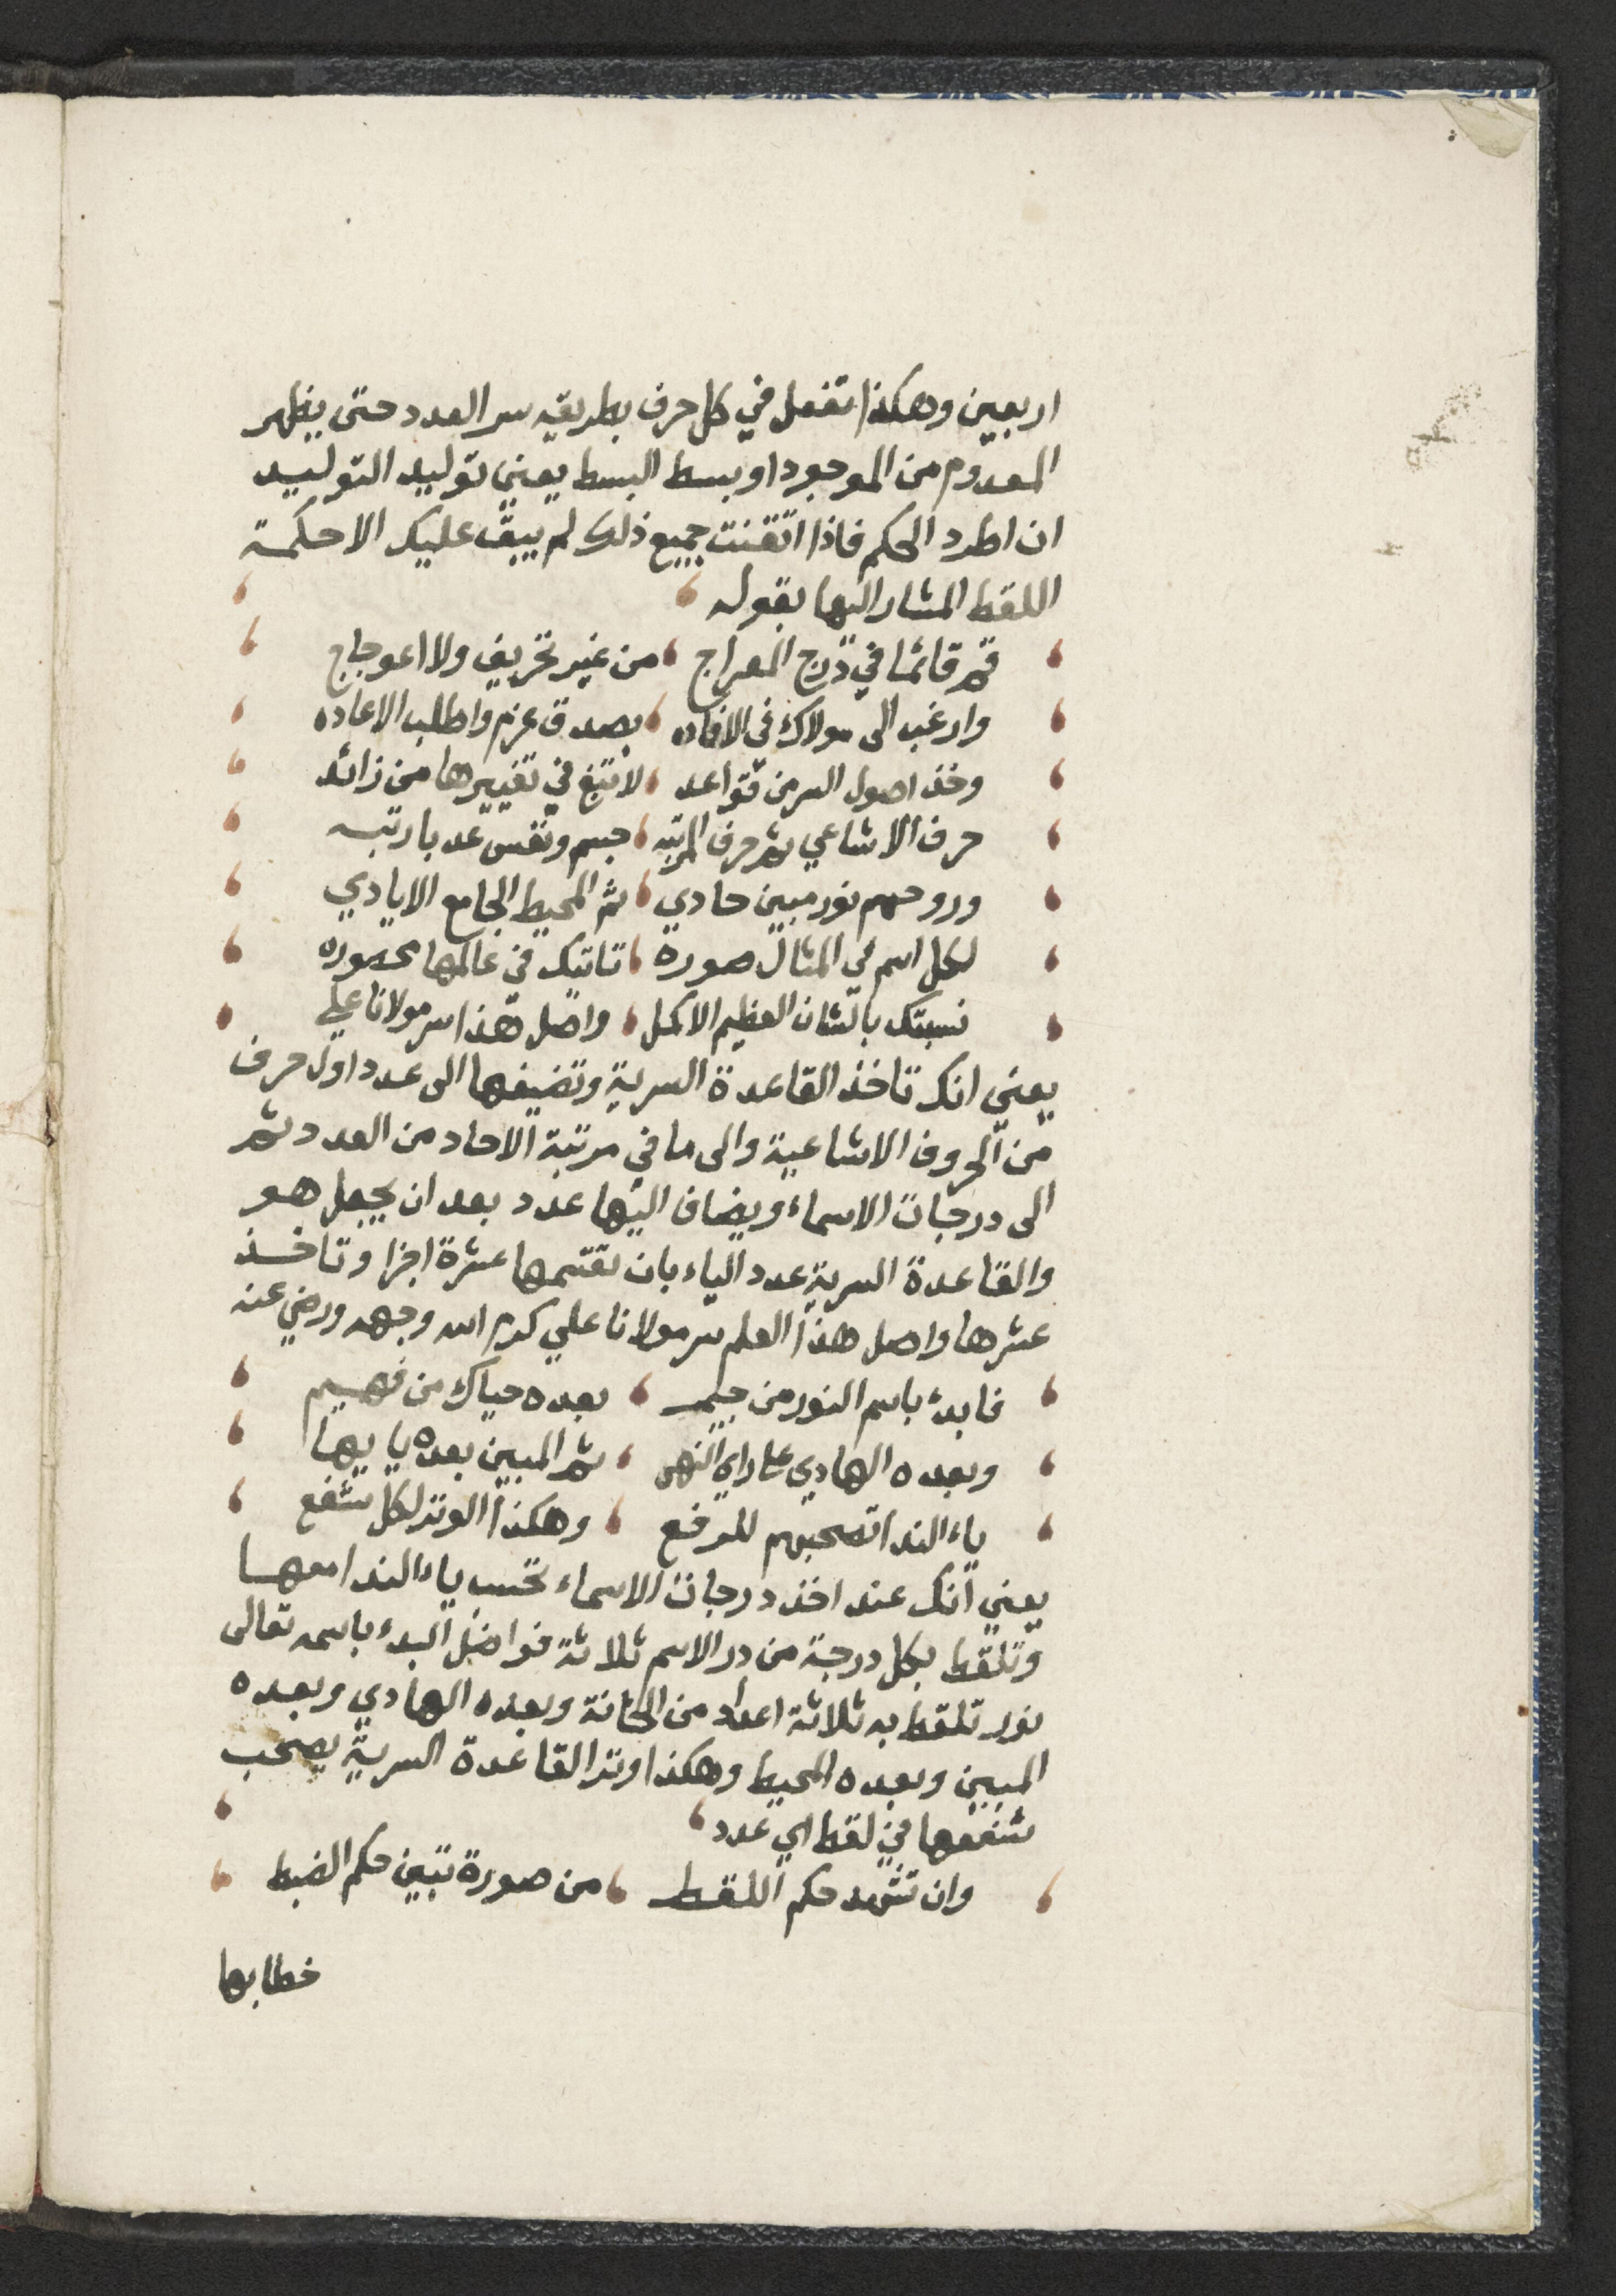 اربعين وهكذا تفعل في كل حرف بطريقه سر العدد حتى يظهر
المعدوم من الموجود او بسط البسط يعني توليد التوليد
ان اطرد الحكم فاذا اتقنت جميع ذلك لم يبق عليك الا حكمة
اللقط المشار اليها بقوله
قم قائما في درج المعراج ، من غير تحريف ولا اعوجاج
وارغب الى مولاك في الافاده ، بصدق عزم واطلب الاعاده
وخذ اصول السر من قواعد ، لا تبتغ في تغييرها من زائد
حرف الاشاعي ثم حرف المرتبه ، جسم ونفس عد با رتبه
وروحهم نور مبين هادي ، ثم المحيط الجامع الايادي
لكل اسم في المثال صوره ، تاتيك في عالمها محصوره
نسبتك بالشان العظيم الاكمل ، واصل هذا سر مولانا علي
يعني انك تاخذ القاعدة السرية وتضيفها الى عدد اول حرف
من الحروف الاشاعية والى ما في مرتبة الاحاد من العدد ثم
الى درجات الاسماء ويضاف اليها عدد بعد ان يجعل هو
والقاعدة السرية عدد الياء بان تقسمها عشرة اجزا وتاخذ
عشرها واصل هذا العلم سر مولانا علي كرم الله وجهه ورضي عنه
فابدء باسم النور من جيم ، بعده حياك من فهيم
وبعده الهادي على راي النهى ، ثم المبين بعده يا يها
ياء الندا تصحبهم للمرفع ، وهكذا الوتر لكل شفع
يعني انك عند اخذ درجات الاسماء تحسب ياء الندا معها
وتلقط بكل درجة من در الاسم ثلاثة فواضل البدء باسمه تعالى
نور تلقط به ثلاثة اعداد من الخانة وبعده الهادي وبعده
المبين وبعده المحيط وهكذا وتر القاعدة السرية يصحب
شفعها في لقط اي عدد
وان تشهد حكم اللقط ، من صورة تبين حكم الضبط
خطابها